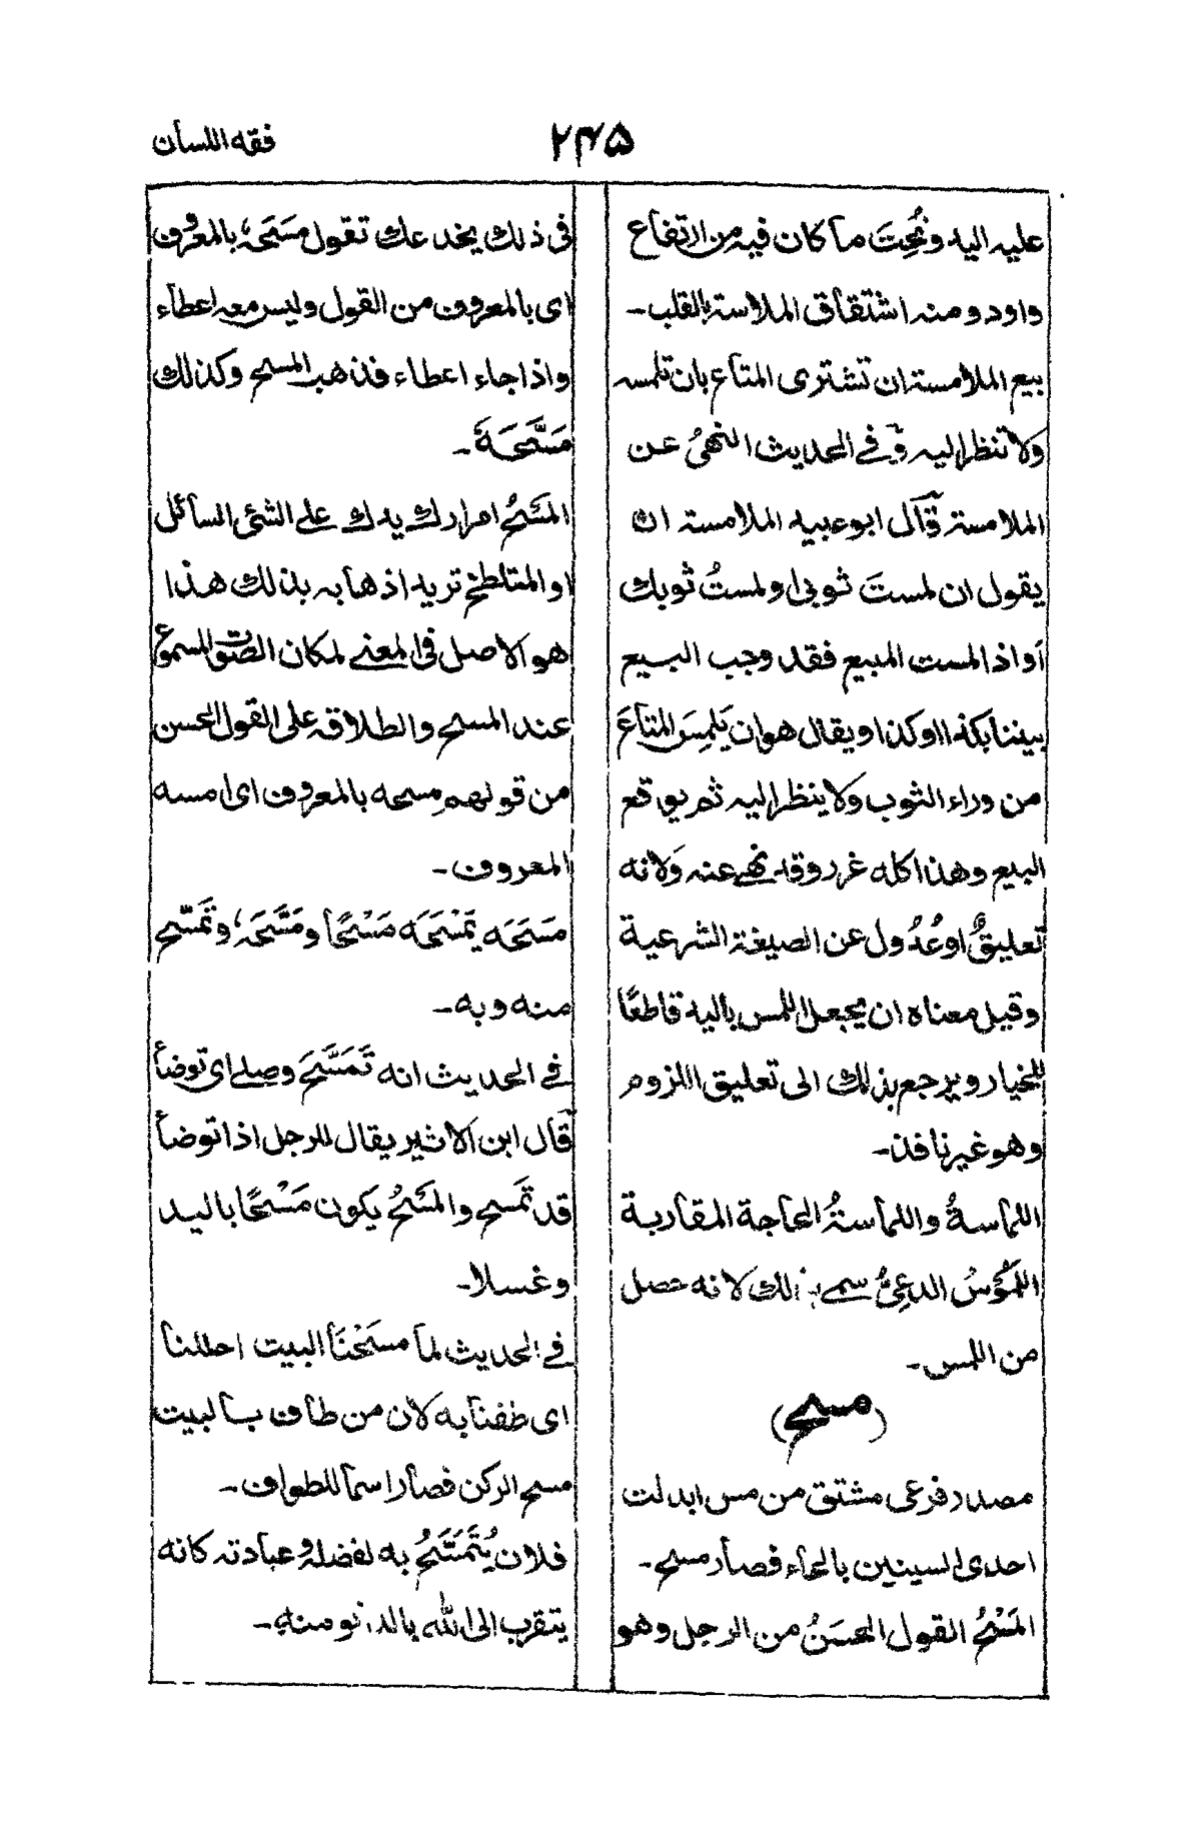 فقه اللسان
۲۴۵
عليه اليد ونُحِتَ ما كان فيه من ارتفاع
واود ومنه اشتقاق الملاسة بالقلب۔
بيع الملامسة ان تشترى المتاع بان تلمسه
ولا تنظر اليه و فى الحديث النهىُ عن
الملامسة قال ابو عبيد الملامسة ان
يقول ان لمستَ ثوبى او لمستُ ثوبك
او اذا لمست المبيع فقد وجب البيع
بيننا بكذا او كذا ويقال هو ان يَلمِسَ المتاعَ
من وراء الثوب ولا ينظر اليه ثم يوقع
البيع وهذا كله غرر وقد نهى عنه ولانه
تعليقٌ او عُدُول عن الصيغة الشرعية
وقيل معناه ان يجعل اللمس باليد قاطعًا
للخيار ويرجع بذلك الى تعليق اللزوم
وهو غير نافذ۔
اللماسةُ واللماسةُ الحاجة المقاربة
اللَّمُوْسُ الدعىُّ سمى بذلك لانه حصل
من اللمس۔
(مسح)
مصدر فرعى مشتق من مس ابدلت
احدى السينين بالحاء فصار مسح۔
المَسْحُ القول الحسَنُ من الرجل وهو
فى ذلك يخدعك تقول مسَحَه بالمعروف
اى بالمعروف من القول وليس معه اعطاء
واذا جاء اعطاء فذهب المسح وكذلك
مَسَّحَهٗ۔
المَسْحُ امرارك يدك على الشئى السائل
او المتلطخ تريد اذهابه بذلك هذا
هو الاصل فى المعنى لمكان الصوت المسموع
عند المسح والطلاقه على القول الحسن
من قولهم مسحه بالمعروف اى امسه
المعروف۔
مَسَحَه يَمْسَحَه مَسْحًا ومَسَّحَه وتَمَسَّح
منه وبه۔
فى الحديث انه تَمَسَّحَ وصلى اى توضأ
قال ابن الاثير يقال للرجل اذا توضأ
قد تمسح والمَسْحُ يكون مَسْحًا باليد
وغسلا۔
فى الحديث لما مسَحْنَا البيت احللنا
اى طفنا به لان من طاف بالبيت
مسح الركن فصار اسما للطواف۔
فلان يُتَمَسَّحُ به لفضله وعبادته كانه
يتقرب الى الله بالدنو منه۔